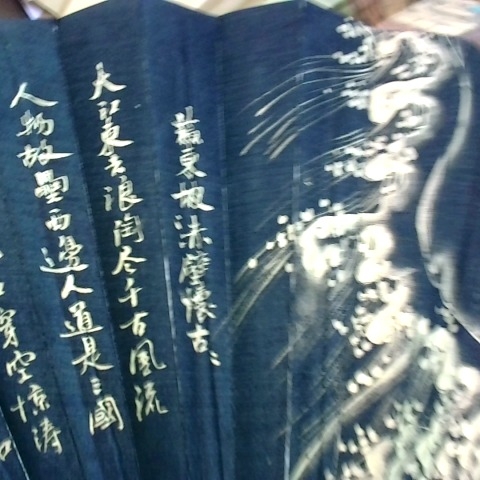 蘇東坡赤壁懷古
大江東去浪淘尽千古風流
人物故壘西邊人道是三國
穿空惊涛